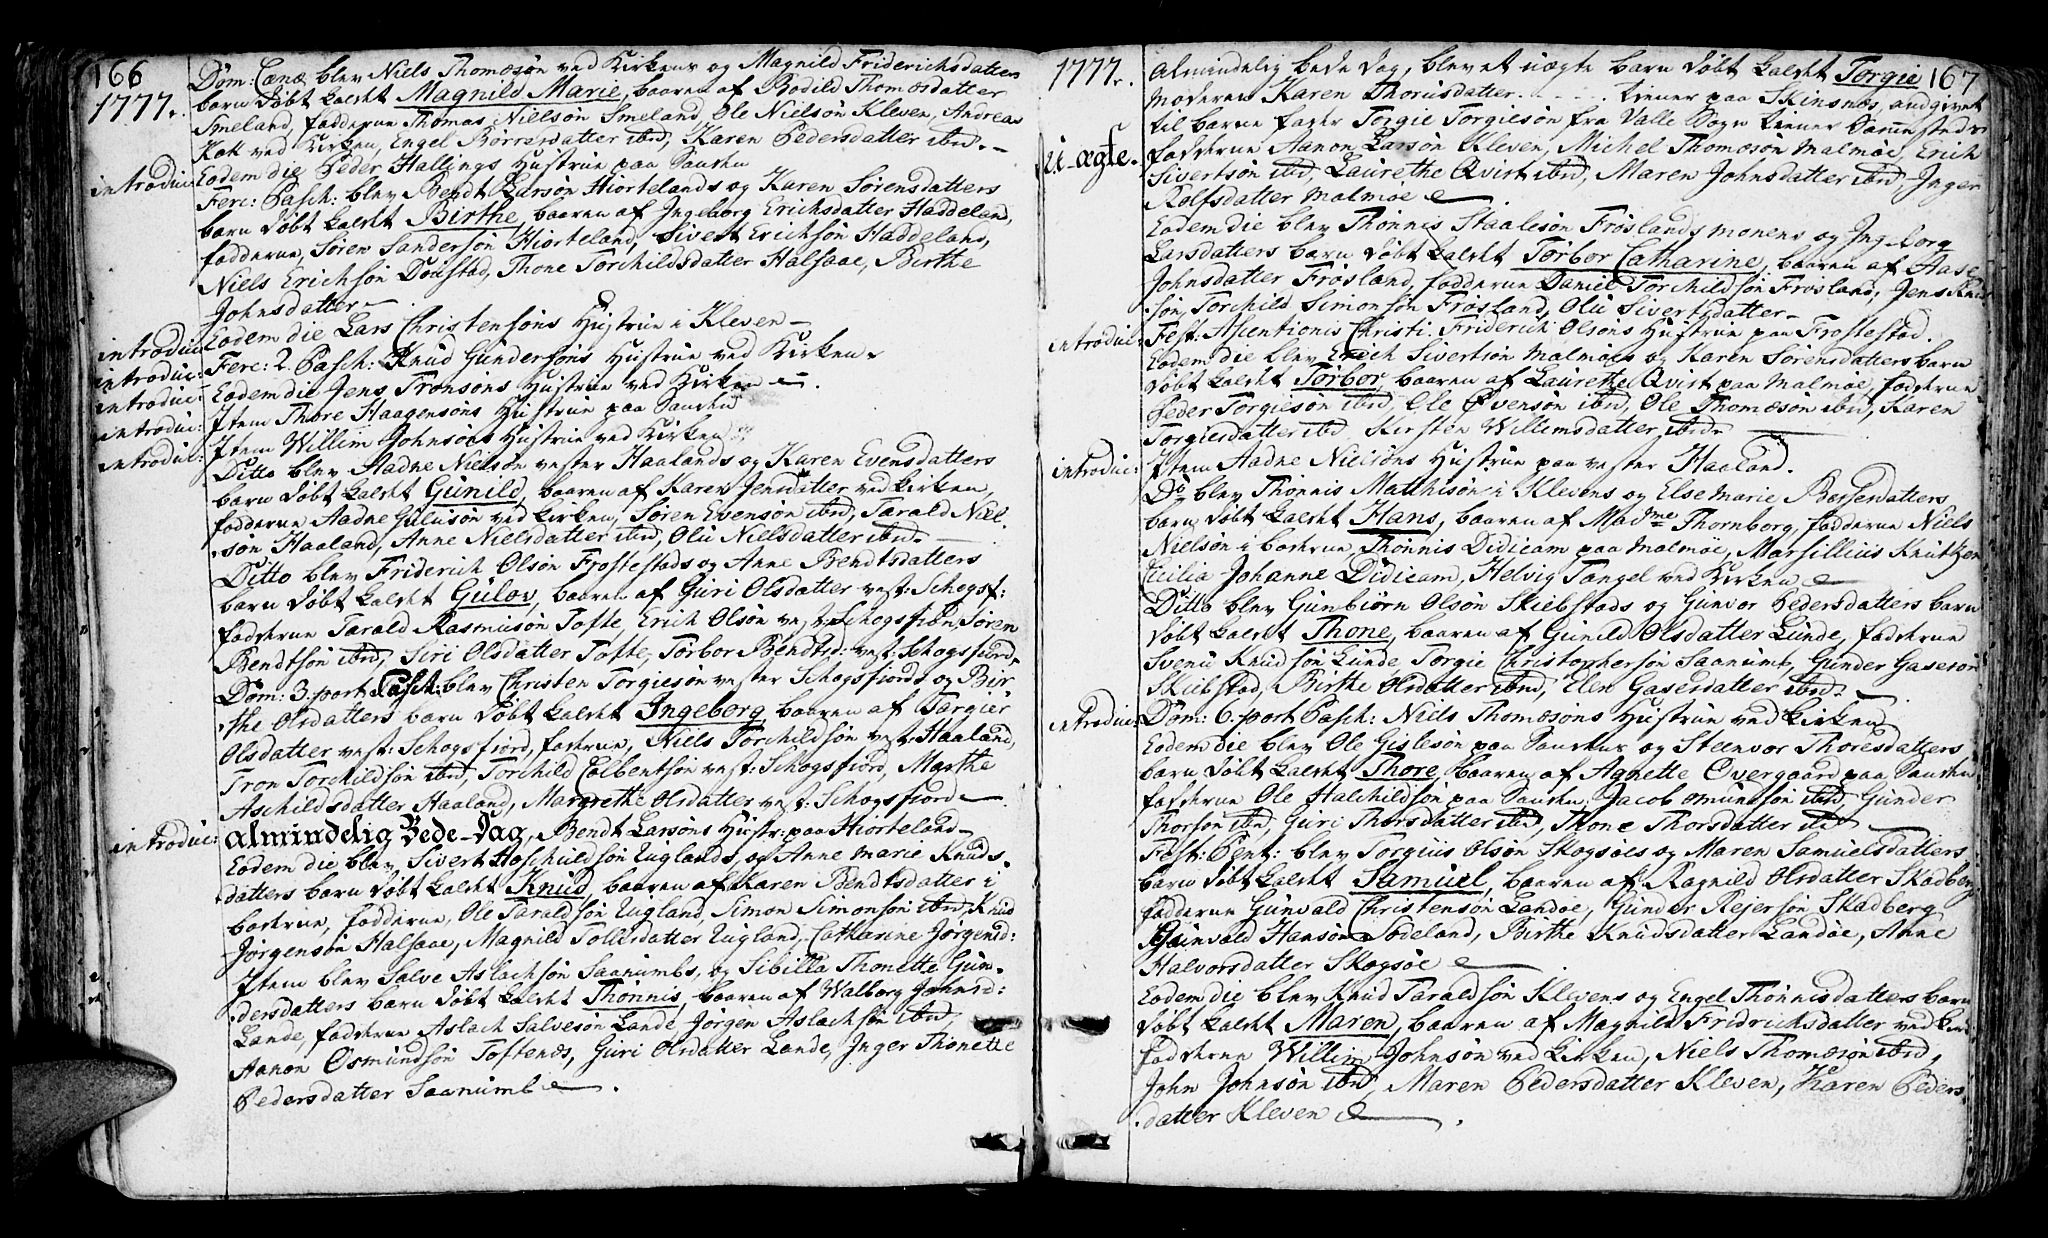 166
1777.
Dom: Cænæ blev Niels Thomæsøn ved Kirkens og Magnild Friderichsdatters
barn døbt kaldet Magnild Marie, baaren af Bodild Thomæsdatter
Smeland, fadderne Thomas Nielsøn Smeland, Ole Nielsøn Kleven, Andreas
Kok ved Kirken, Engel Børresdatter ibid, Karen Pedersdatter ibid.
introduc: Eodem die Peder Hallings Hustrue paa Sanden
Fer: Pasch: blev Bendt Larsøn Hiortelands og Karen Sørensdatters
barn døbt kaldet Birthe, baaren af Ingeborg Erichsdatter Haddeland,
fadderne, Søren Sandersøn Hiorteland, Sivert Erichsøn Haddeland,
Niels Erichsøn Døustad, Thone Torchildsdatter Halsaae, Birthe
Johnsdatter
introduc: Eodem die Lars Christensøns Hustrue i Kleven
introduc: Fer: 2. Pasch: Knud Gundersøns Hustrue ved Kirken.
introduc: Eodem die Jens Tronsøns Hustrue ved Kirken
introduc: Item Thore Haagensøns Hustrue paa Sanden
introduc: Item Willim Johnsøns Hustrue ved Kirken
Ditto blev Aadne Nielsøn vester Haalands og Karen Evensdatters
barn døbt kaldet Gunild, baaren af Karen Jensdatter ved Kirken,
fadderne Aadne Gulusøn ved Kirken, Søren Evensøn ibid, Tarald Niel-
søn Haaland, Anne Nielsdatter ibid, Olu Nielsdatter ibid.
Ditto blev Friderich Olsøn Frostestads og Anne Bendtsdatters
barn døbt kaldet Gulov, baaren af Guri Olsdatter vest: Schogsf:
fadderne Tarald Rasmusøn Tofte, Erich Olsøn vest: Schogsfiord, Søren
Bendtsøn ibid, Siri Olsdatter Tofte, Torbor Bendtsd: vest: Schogsfiord,
Dom: 3. post Pasch: blev Christen Torgiesøn vester Schogsfiords og Bir-
the Olsdatters barn døbt kaldet Ingeborg, baaren af Torgier
Olsdatter vest: Schogsfiord, fadderne, Niels Torchildsøn vest: Haaland,
Tron Torchildsøn ibid, Torchild Colbentsøn vest: Schogsfiord, Marthe
Aschildsdatter Haaland, Margrethe Olsdatter vest: Schogsfiord
introduc: Almindelig Bede-Dag, Bendt Larsøns Hustr: paa Hiorteland
Eodem die blev Sivert Hoschuldsøn Uglands, og Anne Marie Knuds-
datters barn døbt kaldet Knud, baaren af Karen Bendtsdatter i
barkene, fadderne, Ole Taraldsøn Ugland, Simon Simonsøn ibid, Knud
Jørgensøn Halsaae, Magnild Tollisdatter Ugland, Catharine Jørgensd:
Item blev Salve Aslachsøn Saanumbs, og Sibilla Thonette Gun-
dersdatters barn døbt kaldet Thonnis, baaren af Walborg Johnsd:
Lande, fadderne Aslach Salvesøn Lande, Jørgen Aslachsøn ibid,
Aanon Osmundsøn Toftenæs, Guri Olsdatter Lande, Inger Thonette
Pedersdatter Saanumb.
167
1777.
Almindelig bede dag, blev et uægte barn døbt kaldet Torgie
Moderen Karen Thorisdatter . . . . tiener paa Skinsnæs, angivet
til barne fader Torgie Torgiesøn fra Valle Sogn tiener Sammesteds
U-ægte. fadderne Aanon Larsøn Kleven, Michel Thomæsøn Malmøe, Erich
Sivertsøn ibid, Laurethe Qvirt ibid, Maren Johnsdatter ibid, Inger
Rolfsdatter Malmøe
Eodem die blev Thonnis Staalesøn Frøslandsmonens og Ingeborg
Larsdatters barn døbt kaldet Torbor Catharine, baaren af Aase
Johnsdatter Frøsland, fadderne Daniel Torchildsøn Frøsland, Jens Knud-
søn, Torchild Simonsøn Frøsland, Olu Sivertsdatter
introduc: Fest: Ascentionis Christi. Friderich Olsøns Hustrue paa Frostestad.
Eodem die blev Erich Sivertsøn Malmøes og Karen Sørensdatters barn
døbt kaldet Torbor, baaren af Laurethe Qvirt paa Malmøe, fadderne
Peder Torgiesøn ibid, Ole Øvensøn ibid, Ole Thomæsøn ibid, Karen
Torgiesdatter ibid Kirsten Willemsdatter ibid
introduc: Item Aadne Nielsøns Hustrue paa vester Haaland.
Do blev Thonnis Matthisøn i Klevens og Else Marie Børsesdatters
barn døbt kaldet Hans, baaren af Madme Thornborg, fadderne Niels
Nielsøn i barkene, Thonnis Didicam paa Malmøe, Marsillius Knutzen
Cicilia Johanne Didicam, Helvig Tangel ved Kirken
Ditto blev Gunbiørn Olsøn Skiebstads og Gunvor Pedersdatters barn
døbt kaldet Thone, baaren af Gunild Olsdatter Lunde, fadderne
Svenu Knudsøn Lunde Torgie Christophersøn Saanumb, Gunder Gasesøn
Skiebstad, Birthe Olsdatter ibid, Elen Gasesdatter ibid.
introduc: Dom: 6. post Pasch: Niels Thomæsøns Hustrue ved Kirken
Eodem die blev Ole Gislesøn paa Sandens og Steenvor Thoresdatters
barn døbt kaldet Thore, baaren af Agnette Overgaard paa Sanden
fadderne Ole Halchildsøn paa Sanden, Jacob Omundsøn ibid, Gunder
Thorsøn ibid, Guri Thorsdatter ibid, Thone Thorsdatter ibd
Fest: Pent: blev Torgius Olsøn Skogsøes og Maren Samuelsdatters
barn døbt kaldet Samuel, baaren af Ragnild Olsdatter Skadberg
fadderne Gunvald Christensøn Landøe, Gunder Rejersøn Skadberg
Gunvald Hansøn Todeland, Birthe Knudsdatter Landøe, Anne
Halvorsdatter Skogsøe
Eodem die blev Knud Taraldsøn Klevens og Engel Thønnisdatters barn
døbt kaldet Maren, baaren af Magnild Fridrichsdatter ved Kirk
fadderne Willim Johnsøn ved Kirken, Niels Thomæsøn ibid,
John Johnsøn ibid, Maren Pedersdatter Kleven, Karen Peders-
datter Kleven